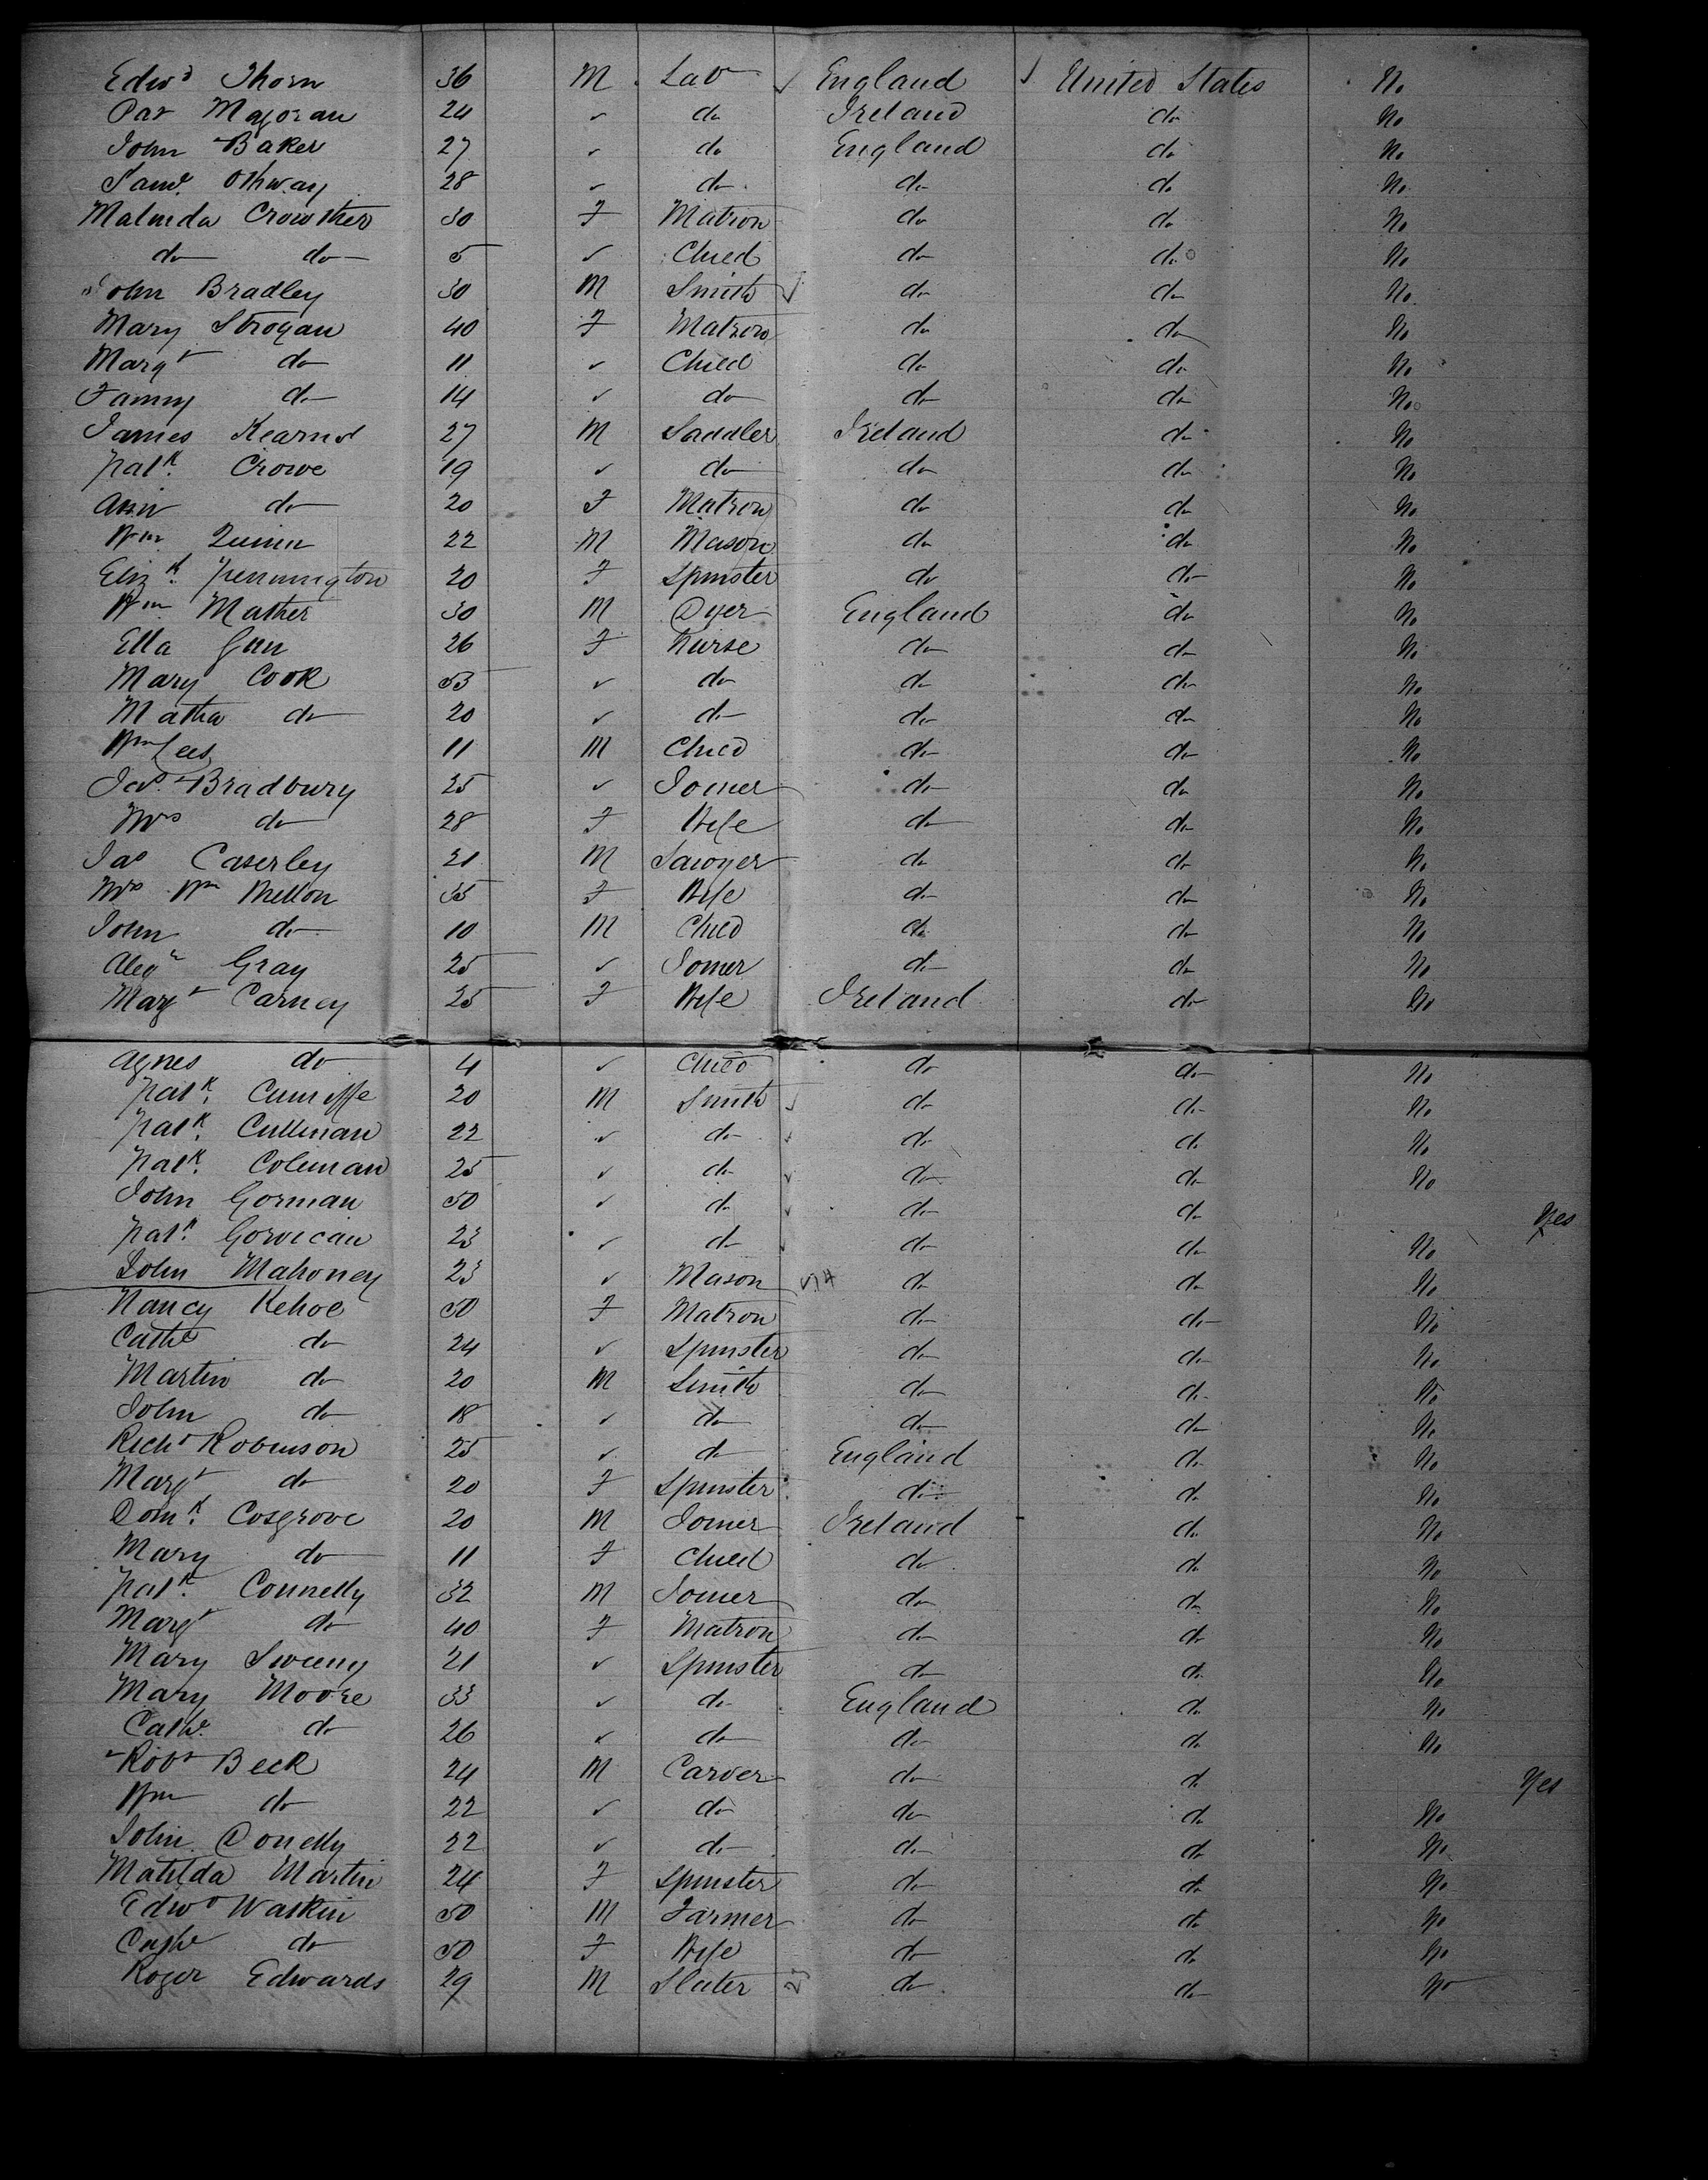 Edwd Thorn 36 M Lab England United States No
Pat Magoran 24 " do Ireland do No
John Baker 27 " do England do No
Saml Othway 28 " do do do No
Malinda Crowther 30 F Matron do do No
do do 5 " Child do do No
John Bradley 30 M Smith do do No
Mary Strogan 40 F Matron do do No
Margt do 11 " Child do do No
Fanny do 14 " do do do No
James Kearns 27 M Saddler Ireland do No
Patk Crowe 19 " do do do No
Ann do 20 F Matron do do No
Wm Quinn 22 M Mason do do No
Elizth Pennington 20 F Spinster do do No
Wm Mather 30 M Dyer England do No
Ella Gun 26 F Nurse do do No
Mary Cook 53 " do do do No
Matha do 20 " do do do No
Wm Lees 11 M Child do do No
Jas Bradbury 25 " Joiner do do No
Mrs do 28 F Wife do do No
Jas Caserley 21 M Sawyer do do No
Mrs Wm Mellon 35 F Wife do do No
John do 10 M Child do do No
Alexr Gray 25 " Joiner do do No
Margt Carney 25 F Wife Ireland do No
Agnes do 4 " Child do do No
Patk Cunniffe 20 M Smith do do No
Patk Cullinan 22 " do do do No
Patk Coleman 25 " do do do No
John Gorman 50 " do do do Yes
Patk 23 " do do do No
John Mahoney 23 " Mason do do No
Nancy Kehoe 50 F Matron do do No
Cathe do 24 " Spinster do do No
Martin do 20 M Smith do do No
John do 18 " do do do No
Richd Robinson 25 " do England do No
Margt do 20 F Spinster do do No
Domk Cosgrove 20 M Joiner Ireland do No
Mary do 11 F Child do do No
Patk Connelly 32 M Joiner do do No
Margt do 40 F Matron do do No
Mary Sweeny 21 " Spinster do do No
Mary Moore 33 " do England do No
Cathe do 26 " do do do No
Robt Beck 24 M Carver do do Yes
Wm do 22 " do do do No
John Donelly 22 " do do do No
Matilda Martin 24 F Spinster do do No
Edwd Waskin 50 M Farmer do do No
Cathe do 50 F Wife do do No
Roger Edwards 29 M Slater 25 do do No